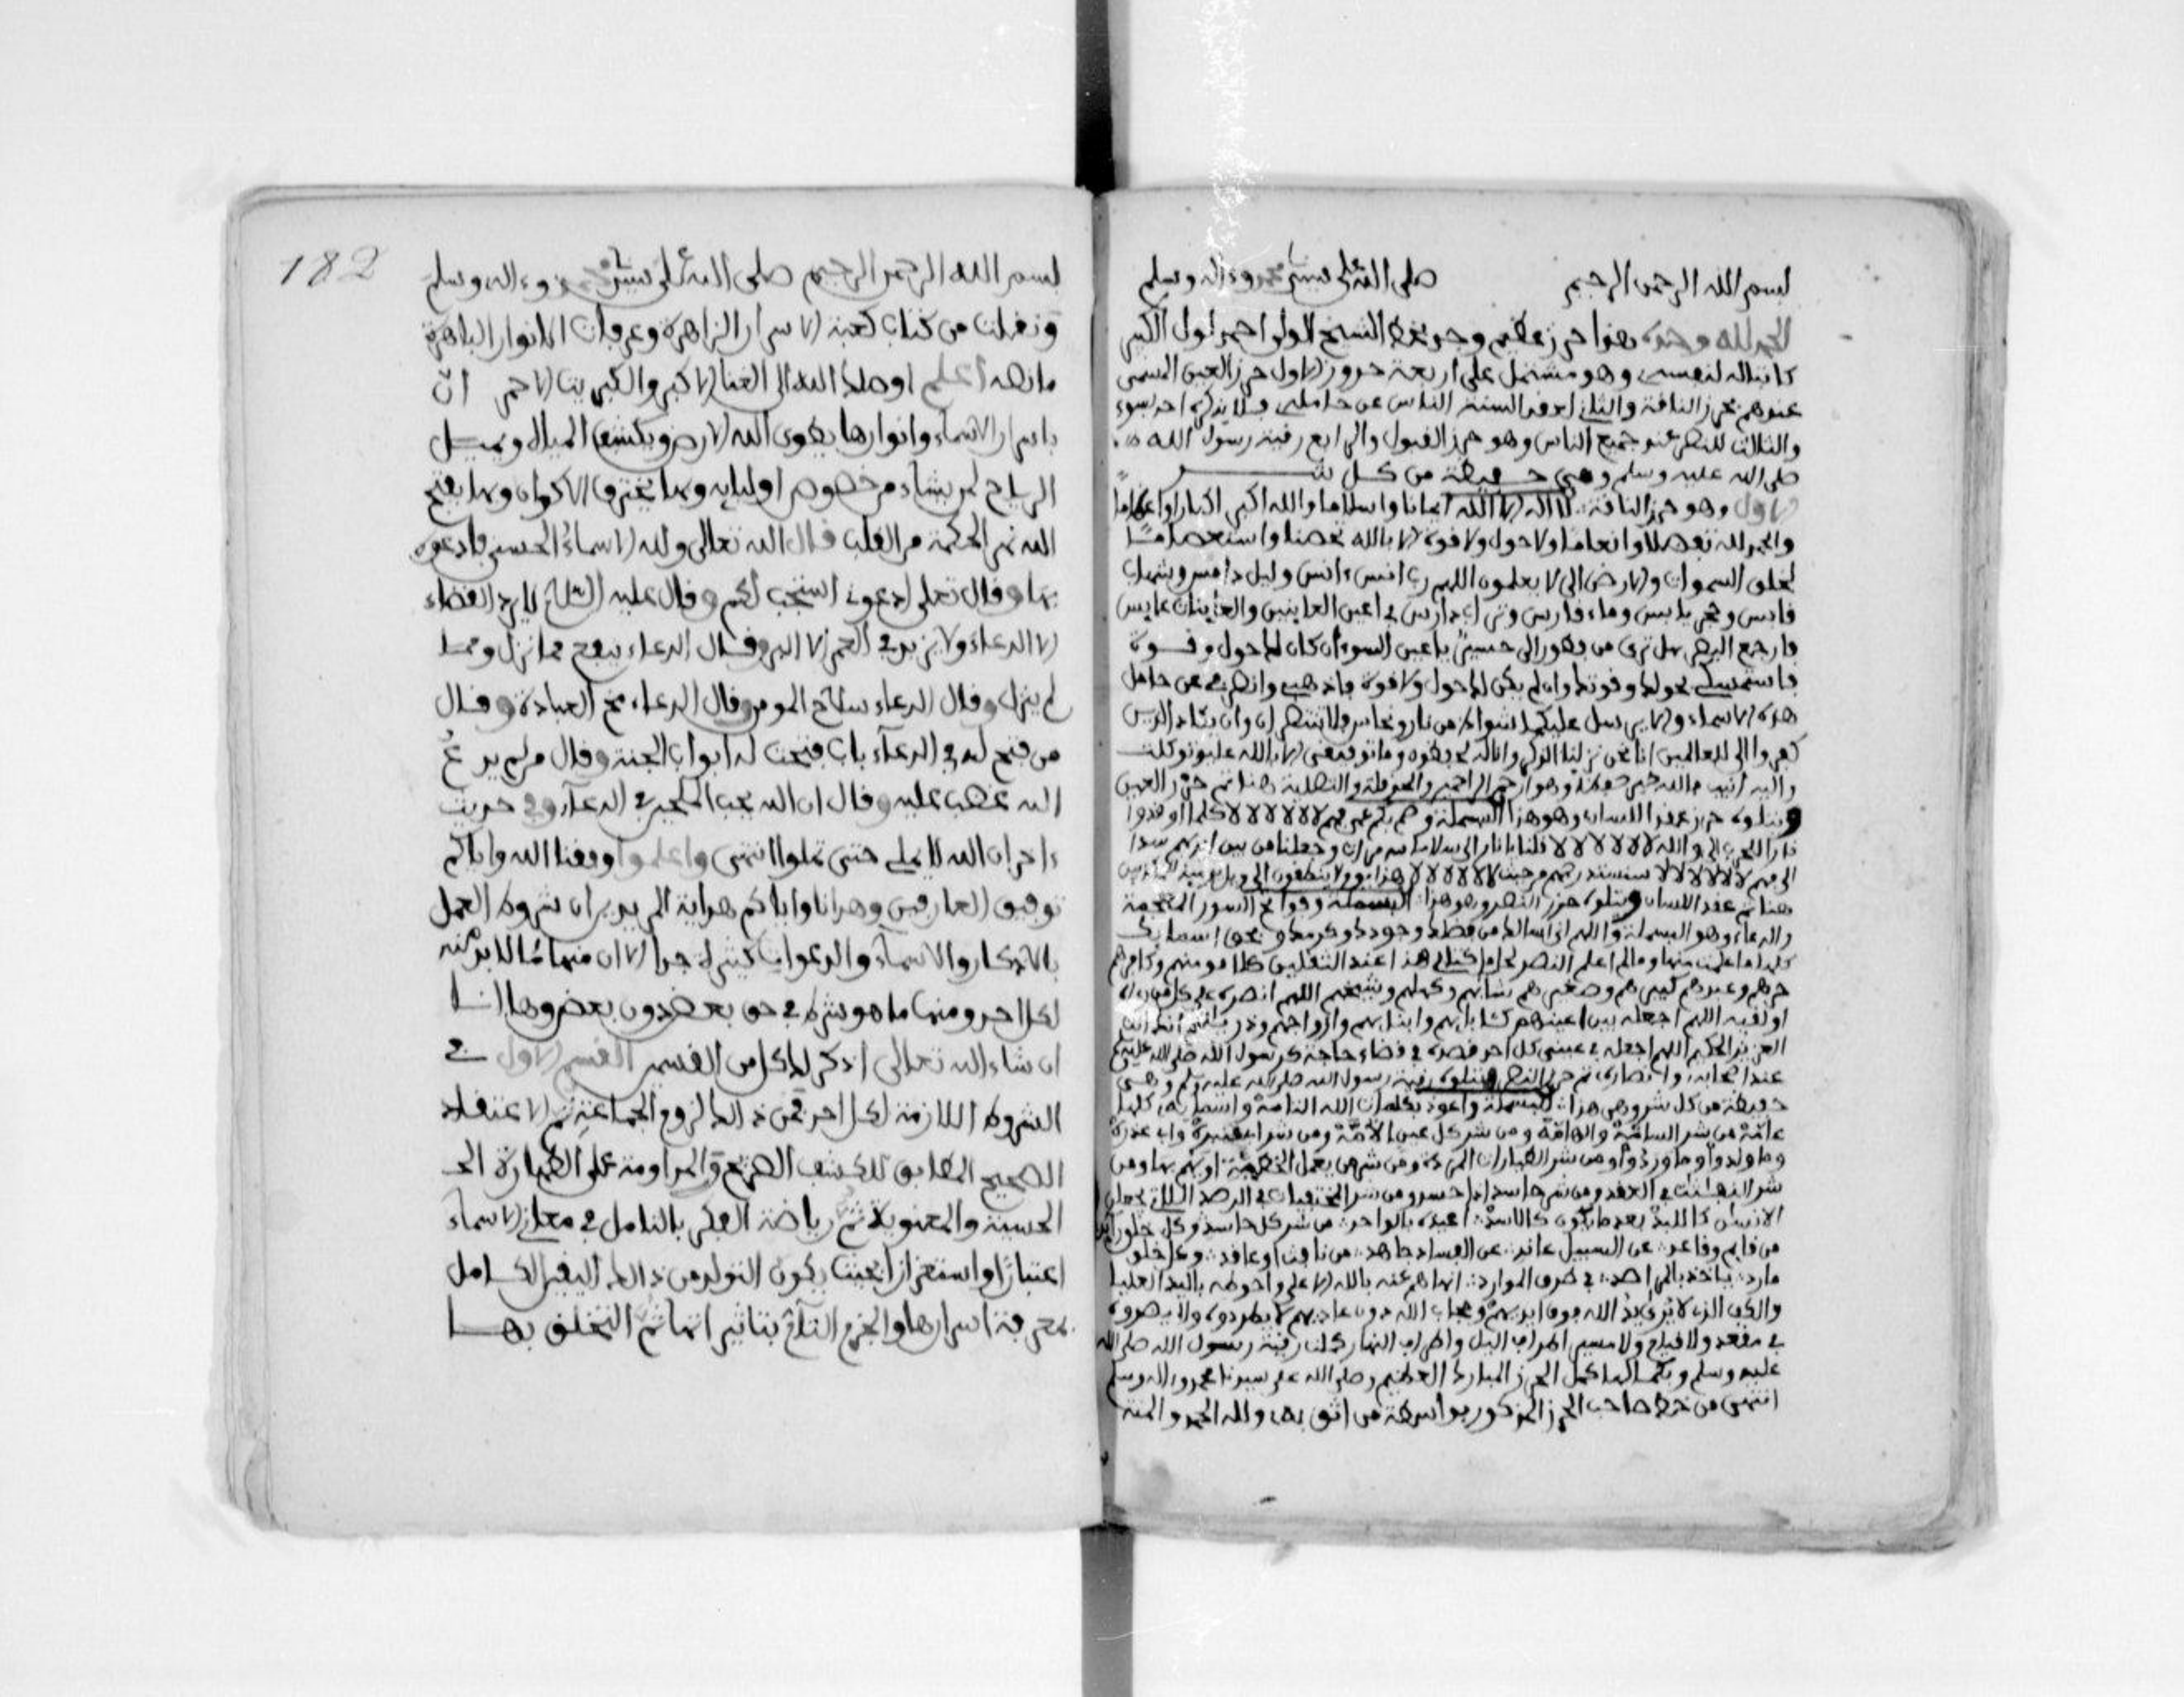 بسم الله الرحمن الرحيم صلى الله على سيدنا محمد وءاله وسلم
الحمد لله وحده هذا حرز عظيم وجد بخط الشيخ الولي احمد لول الكبير
كاتبا له لنفسه وهو مشتمل على اربعة حروز الاول حرز العين المسمى
عندهم بحرز الناقة والثاني لعقد السنة الناس عن حامله فلا يذكره احد بسوء
والثالث للنصر عند جميع الناس وهو حرز القبول والرابع رقية رسول الله
صلى الله عليه وسلم وهي حفيظة من كل شر
الاول وهو حرز الناقة لا اله الا الله ايمانا واسلاما والله اكبر اكبارا واعظاما
والحمد لله تفضلا وانعاما ولا حول ولا قوة الا بالله تحصنا واستعصاما
لخلق السموات والارض الى لا يعلمون اللهم رب انيس ءانس وليل دامس وشهاب
قابس وحجر يابس وماء فارس وتراب دارس في اعين العاينين والعاينات عابس
فارجع البصر هل ترى من فطور الى حسير يا عين السوء ان كان لك حول وقوة
فاستمسكي بحولك وقوتك وان لم يكن لك حول ولا قوة فاذهبي وانصرفي عن حامل
هذه الاسماء والا يرسل عليكما شواظ من نار ونحاس فلا تنتصران وان يكاد الذين
كفروا الى للعالمين انا نحن نزلنا الذكر وانا له لحافظون وما توفيقي الا بالله عليه توكلت
واليه انيب فالله خير حفظا وهو ارحم الراحمين والحوقلة والتصلية هنا تم حرز العين
ويتلوه حرز عقد اللسان وهو هذا البسملة وصم بكم عمي فهم لا لا لا لا لا لا كلما اوقدوا
نارا للحرب الى والله لا لا لا لا لا لا قلنا يا نار الى سلاما وجعلنا من بين ايديهم سدا
الى فهم لا لا لا لا لا لا سنستدرجهم من حيث لا لا لا لا لا لا هذا يوم لا ينطقون الى
هنا تم عقد اللسان ويتلوه حرز النصر وهو هذا البسملة وفواتح السور
والدعاء وهو البسملة واللهم اني اسالك من فضلك وجودك وكرمك وبحق اسمايك
كلها ما علمت منها وما لم اعلم النصر لحامل كتابي هذا عند الثقلين كلا مومنهم وكافرهم
حرهم وعبدهم كبيرهم وصغيرهم شابهم وكهلهم وشيخهم اللهم انصره على كل من رءاه
او لقيه اللهم اجعله بين اعينهم كابايهم وابنايهم وازواجهم وذرياتهم انك انت
العزيز الحكيم اللهم اجعله في عيني كل احد قصده في قضاء حاجة كرسول الله صلى الله عليه
عند اصحابه وانصاره تم حرز النصر ويتلوه رقية رسول الله صلى الله عليه وسلم وهي
حفيظة من كل شر وهي هذا البسملة واعوذ بكلمات الله التامة واسمايه كلها
عامة من شر السامة والهامة ومن شر كل عين لامة ومن شر
وما ولد ومن شر
شر النفاثات في العقد ومن شر حاسد اذا حسد ومن شر
اعيذه بالواحد من شر كل حاسد وكل خلق
من قايم وقاعد عن السبيل عاند عن الفساد جاهد من نافث او عاقد وكل خلق
مارد ياخذ بالمراصد في طرق الموارد انهاهم عنه بالله الاعلى واحوطه باليد العليا
والكف الذي لا يرى يد الله فوق ايديهم وحجاب الله دون عاديهم لا يطردوه ولا يضروه
في مقعد ولا قيام ولا مسير اطراف اليل واطراف النهار كملت رقية رسول الله صلى الله
عليه وسلم وبكمالها كمل الحرز المبارك العظيم وصلى الله على سيدنا محمد وءاله وسلم
انتهى من خط صاحب الحرز المذكور بواسطة من اثق به ولله الحمد والمنة
182
بسم الله الرحمن الرحيم صلى الله على سيدنا محمد وءاله وسلم
ونقلت من كتاب كعبة الاسرار الزاهرة وعرفات الانوار الباهرة
ما نصه اعلم اوصلك الله الى الغنا الاكبر والكبريت الاحمر ان
باسرار الاسماء وانوارها يطوى الله الارض ويكشف المياه ويسيل
الرياح لمن يشاء من خصوص اوليايه وبها يخترق الاكوان وبها يفتح
الله نهر الحكمة من القلب قال الله تعالى ولله الاسماء الحسنى فادعوه
بها وقال تعلى ادعوني استجب لكم وقال عليه السلام لا يرد القضاء
الا الدعاء ولا يزيد في العمر الا البر وقال الدعاء ينفع مما نزل ومما
لم ينزل وقال الدعاء سلاح المومن وقال الدعاء مخ العبادة وقال
من فتح له في الدعاء باب فتحت له ابواب الجنة وقال من لم يدع
الله غضب عليه وقال ان الله يحب الملحين في الدعاء وفي حديث
ءاخر ان الله لا يمل حتى تملوا انتهى واعلموا وفقنا الله واياكم
توفيق العارفين وهدانا واياكم هداية المريدين ان شروط العمل
بالاذكار والاسماء والدعوات كثيرة جدا الا ان منها ما لا بد منه
لكل احد ومنها ما هو شرط في حق بعض دون بعض وها انا
ان شاء الله تعالى اذكر لك كلا من القسمين القسم الاول في
الشروط اللازمة لكل احد فمن ذلك لزوم الجماعة ثم الاعتقاد
الصحيح المطابق للكشف الصريح والمداومة على الطهارة
الحسية والمعنوية ثم رياضة الفكر بالتامل في معاني الاسماء
اعتبارا واستغراقا بحيث يكون التولد من ذلك اليقين الكامل
بمعرفة اسرارها والجزم التام بتاثيراتها ثم التخلق بها